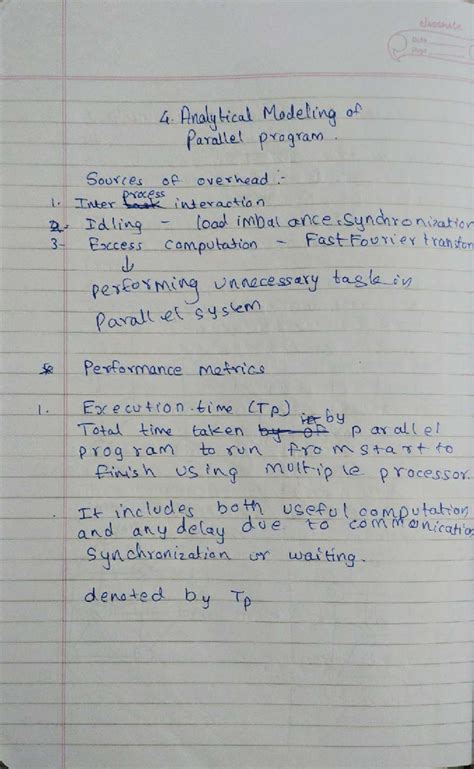 classmate
Date
Page
4. Analytical Modeling of
Parallel program.
Sources of overhead :-
1. Inter process interaction
2. Idling - load imbalance, Synchronization
3- Excess computation - Fast Fourier transfor
↓
performing unnecessary task in
Parallel system
Performance metrics
1. Execution time (Tp)
Total time taken by parallel
program to run from start to
finish using multiple processor.
. It includes both useful computation
and any delay due to communication
synchronization or waiting.
denoted by Tp